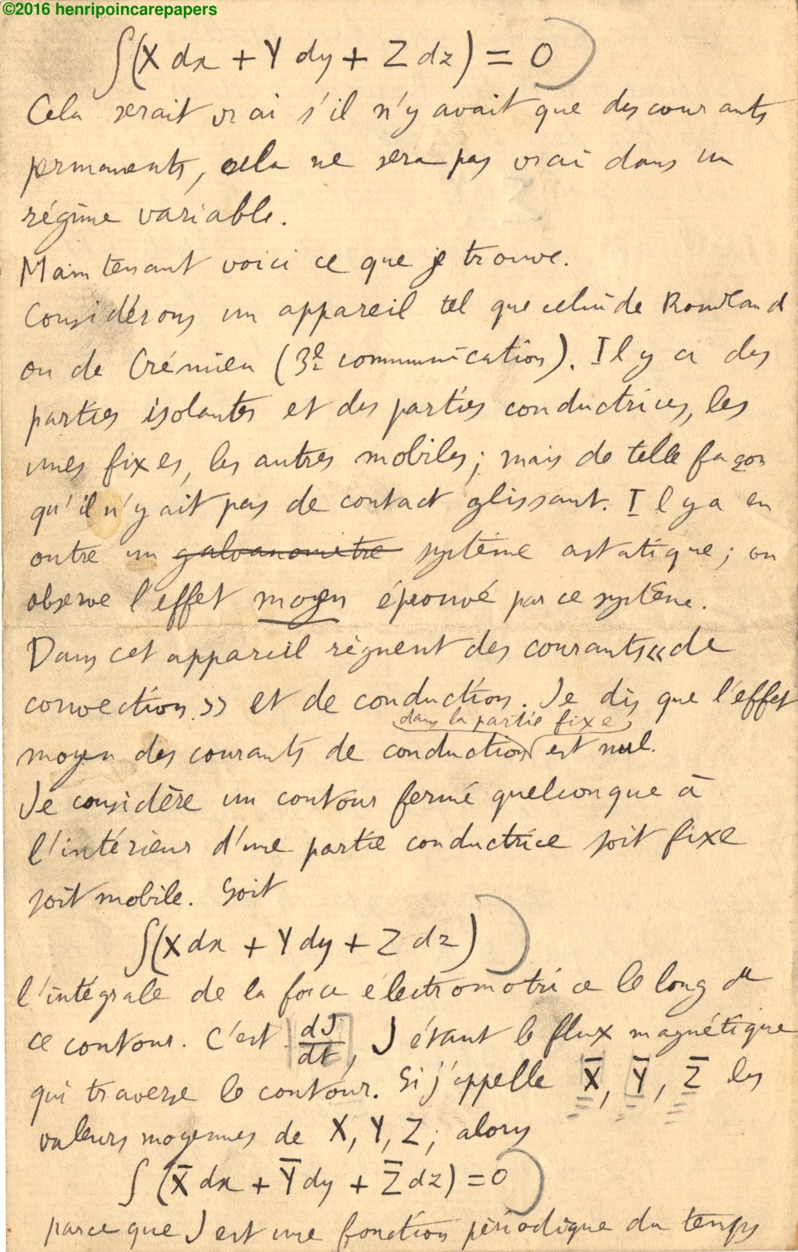 ©2016 henripoincarepapers
∫(X dx + Y dy + Z dz) = 0
Cela serait vrai s'il n'y avait que des courants
permanents, cela ne sera pas vrai dans un
régime variable.
Maintenant voici ce que je trouve.
Considérons un appareil tel que celui de Rowland
ou de Crémieu (3e communication). Il y a des
parties isolantes et des parties conductrices, les
unes fixes, les autres mobiles; mais de telle façon
qu'il n'y ait pas de contact glissant. Il y a en
outre un galvanomètre système astatique; on
observe l'effet moyen éprouvé par ce système.
Dans cet appareil règnent des courants «de
convection» et de conduction. Je dis que l'effet
dans la partie fixe
moyen des courants de conduction est nul.
Je considère un contour fermé quelconque à
l'intérieur d'une partie conductrice soit fixe
soit mobile. Soit
∫(X dx + Y dy + Z dz)
l'intégrale de la force électromotrice le long de
ce contour. C'est dJ/dt, J étant le flux magnétique
qui traverse le contour. Si j'appelle X̅, Y̅, Z̅ les
valeurs moyennes de X, Y, Z; alors
∫(X̅ dx + Y̅ dy + Z̅ dz) = 0
parce que J est une fonction périodique du temps